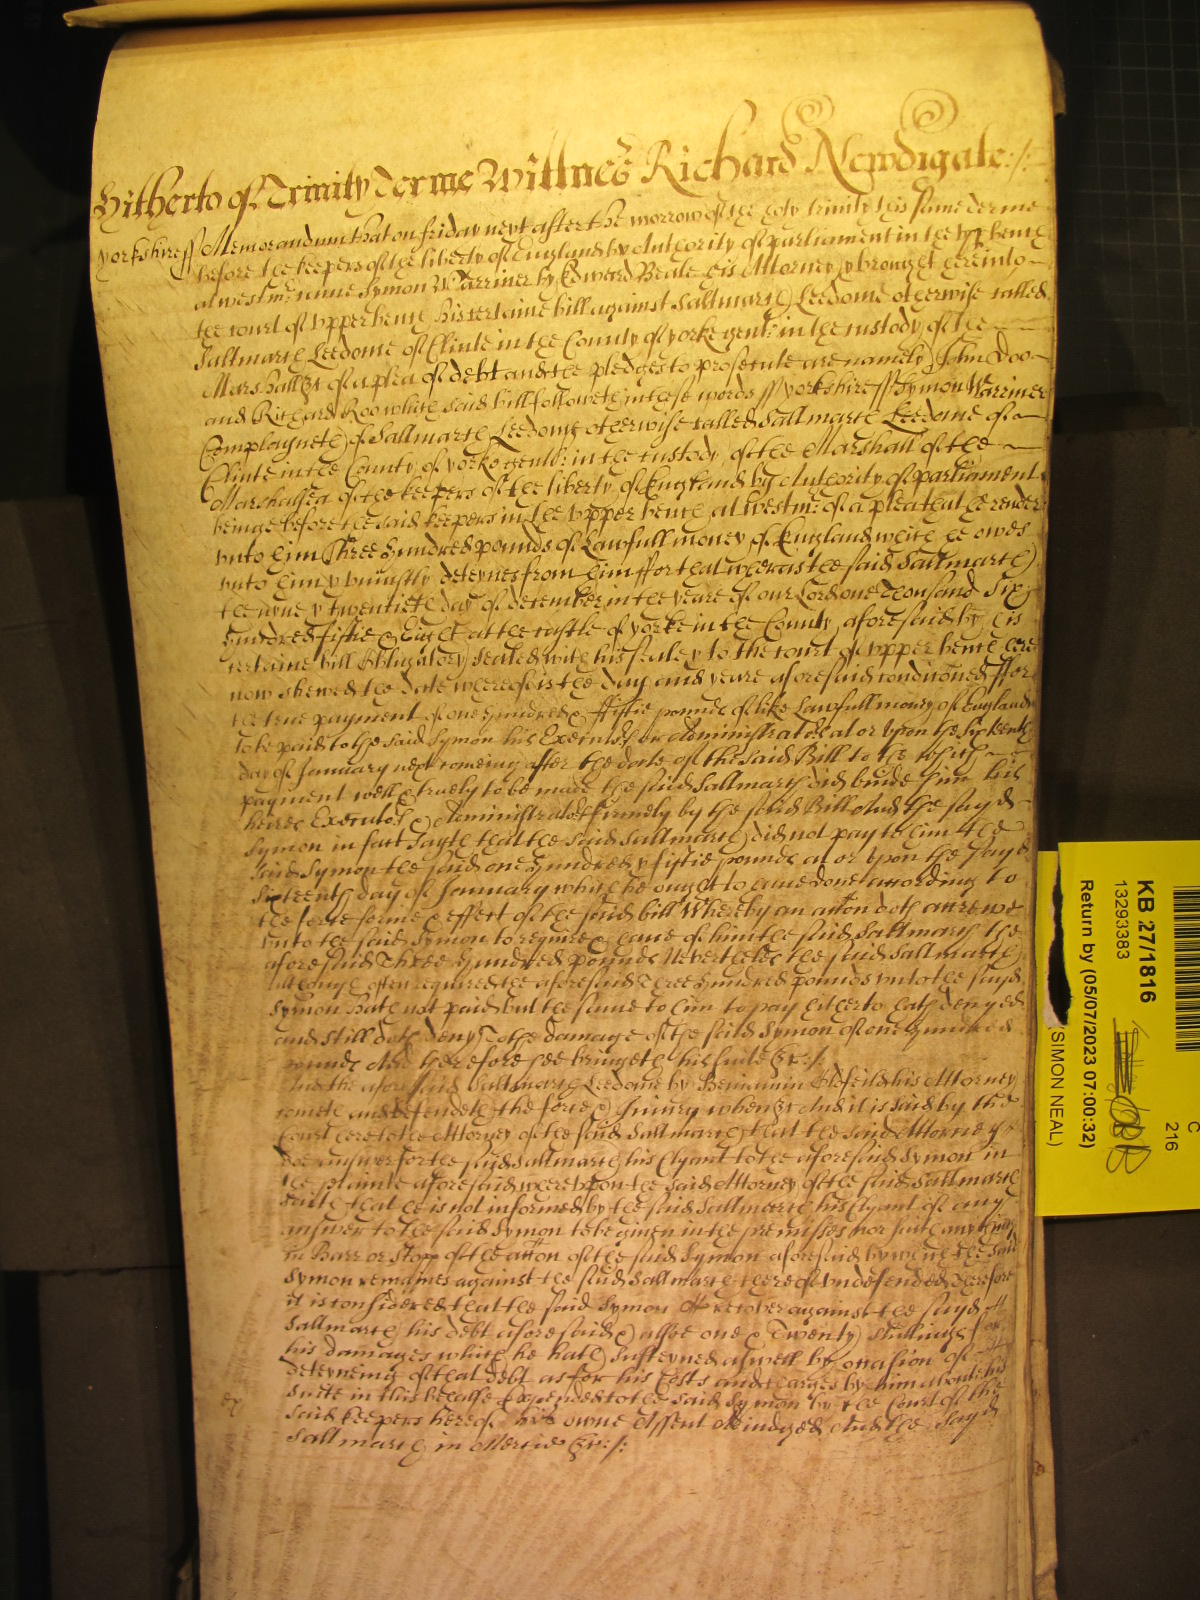 Hitherto of Trinity Terme Wittnes Richard Newdigate:/:
Yorkshire ss Memorandum that on friday next after the morrow of the holy trinity this same Terme
before the keepers of the liberty of England by Authority of parliament in the upp bench
at westm: came Symon Warriner by Edward Beale his Attorney & brought here into
the court of upper bench his certaine bill against Saltmarsh Leedome otherwise called
Saltmarsh Leedome of Clinte in the County of yorke gent: in the custody of the
Marshall &c of a plea of debt and the pledges to prosecute are namely John Doo
and Richard Roo which said bill followeth in these words ss yorkshire ss Symon Warriner
Complayneth of Saltmarsh Leedome otherwise called Saltmarsh Leedome of
Clinte in the County of yorke gent: in the custody of the Marshall of the
Marshalsea of the keepers of the liberty of England by Authority of parliament
beinge before the said keepers in the upper bench at westm: of a plea that he render
unto him Three hundred pounds of Lawfull money of England which he owes
unto him & uniustly deteynes from him ffor that wheras the said Saltmarsh
the nyne & twentieth day of december in the yeare of our Lord one Thousand Six
hundred fiftie & Eight at the castle of yorke in the County aforesaid by his
certaine bill Obligatory Sealed with his seale & to the court of upper bench here
now shewed the date whereof is the day and yeare aforesaid conditioned ffor
the true payment of one hundred & ffiftie pounds of like Lawfull money of England
to be paid to the said Symon his Executors or Administrators at or upon the sixteenth
day of January next comeing after the date of the said Bill to the which
payment well & truely to be made the said Saltmarsh did binde him his
heires Executors & Administrators firmely by the said Bill And the sayd
Symon in fact sayth that the said Saltmarsh did not pay to him the
said Symon the said one hundred & fiftie pounds at or upon the sayd
Sixteenth day of January which he ought to have done according to
the force forme & effect of the said bill Whereby an accon doth accrewe
unto the said Symon to require & have of him the said Saltmarsh the
aforesaid Three hundred pounds Neverthelesse the said Saltmarsh
although often required the aforesaid Three hundred pounds unto the sayd
Symon hath not paid but the same to him to pay hitherto hath denyed
and still doth deny To the damage of the said Symon of one hundred
pounds And therefore hee bringeth his suite &c:/:
And the aforesaid Saltmarsh Leedome by Beniamin Oldfeild his Attorney
cometh and defendeth the force & Iniury when &c And it is said by the
Court here to the Attorney of the said Saltmarsh that the said Attorney
doe answer for the said Saltmarsh his Clyant to the aforesaid Symon in
the plainte aforesaid whereupon the said Attorney of the said Saltmarsh
saith that he is not informed by the said Saltmarsh his Clyant of any
answer to the said Symon to be given in the premisses nor saith any thing
in Barr or Stopp of the accon of the said Symon aforesaid by which the said
Symon remaines against the said Saltmarsh thereof Undefended Therefore
it is considered that the said Symon doe recover against the sayd
Saltmarsh his debt aforesaid & alsoe one & Twenty shillings for
his damages which he hath susteyned aswell by occasion of
deteyneing of that debt as for his Costs and charges by him about his
suite in this behalfe Expended to the said Symon by the Court of the
said keepers here of his owne Assent Adiudged And the sayd
Saltmarsh in Mercie &c:/:
ex
KB 27/1816
13293383
Return by (05/07/2023 07:00:32)
(SIMON NEAL)
C
216